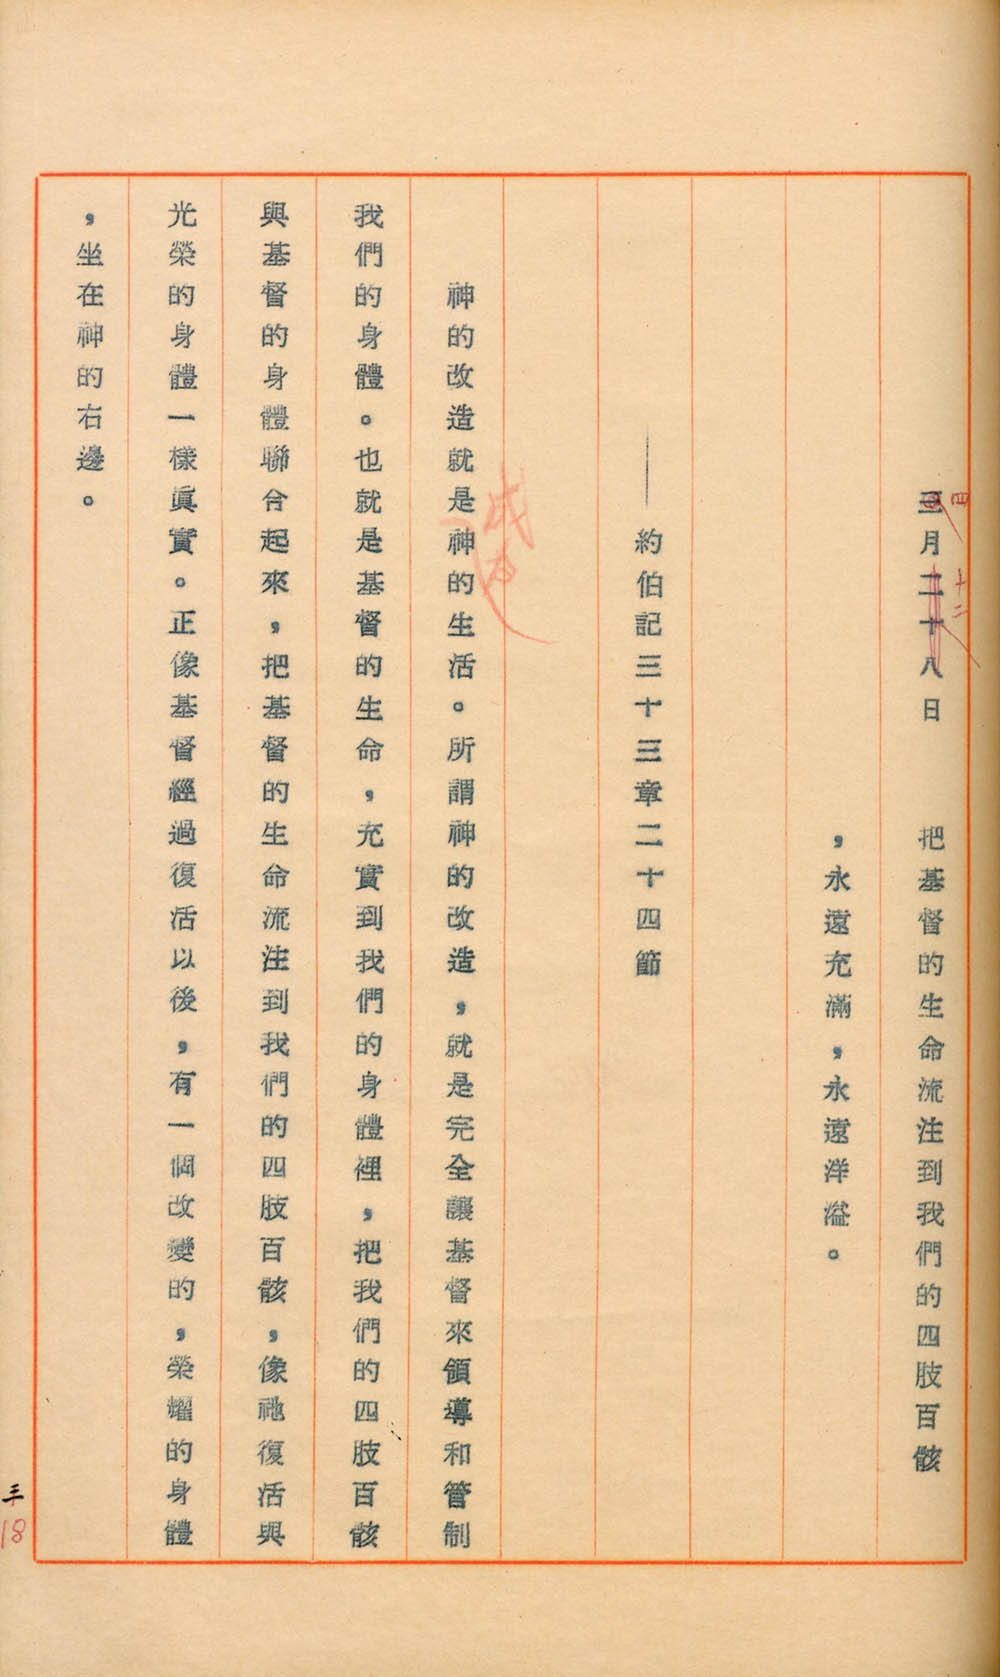 三月二十八日　把基督的生命流注到我們的四肢百骸
四
十二
，永遠充滿，永遠洋溢。
——約伯記三十三章二十四節
神的改造就是神的生活。所謂神的改造，就是完全讓基督來領導和管制
我們的身體。也就是基督的生命，充實到我們的身體裡，把我們的四肢百骸
與基督的身體聯合起來，把基督的生命流注到我們的四肢百骸，像祂復活與
光榮的身體一樣眞實。正像基督經過復活以後，有一個改變的，榮耀的身體
，坐在神的右邊。
三
18